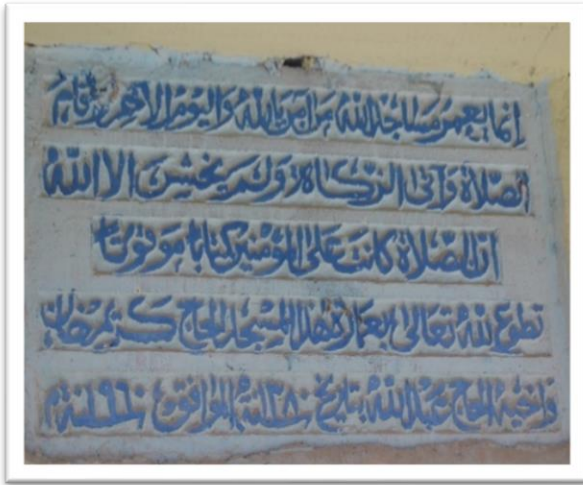 انما يعمر مساجد الله من آمن بالله واليوم الآخر وقام
الصلاة وآتى الزكاة ولم يخش الا الله
ان الصلاة كانت على المؤمنين كتابا موقوتا
تطوع لله تعالى بعمارة هذا المسجد الحاج
واخيه الحاج عبدالله بتاريخ ١٣٨٠ سنة الموافق ١٩٦٠ سنة م